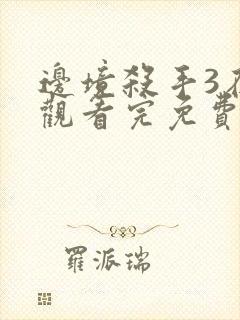 邊境殺手3在
觀看完免費
羅派瑞